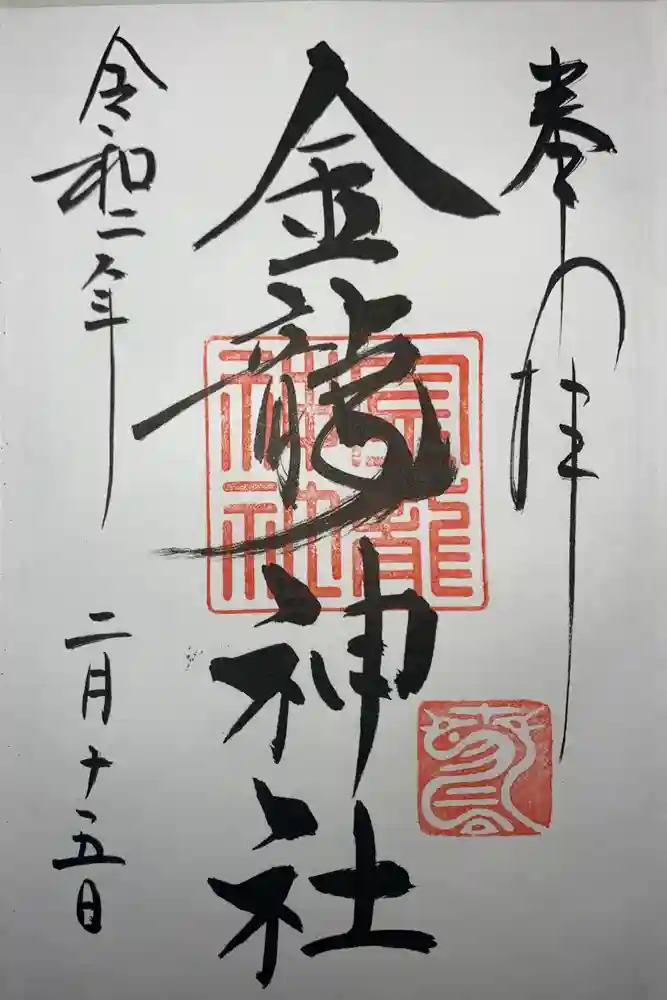 奉拝
金龍神社
金龍神社
令和二年
二月十五日